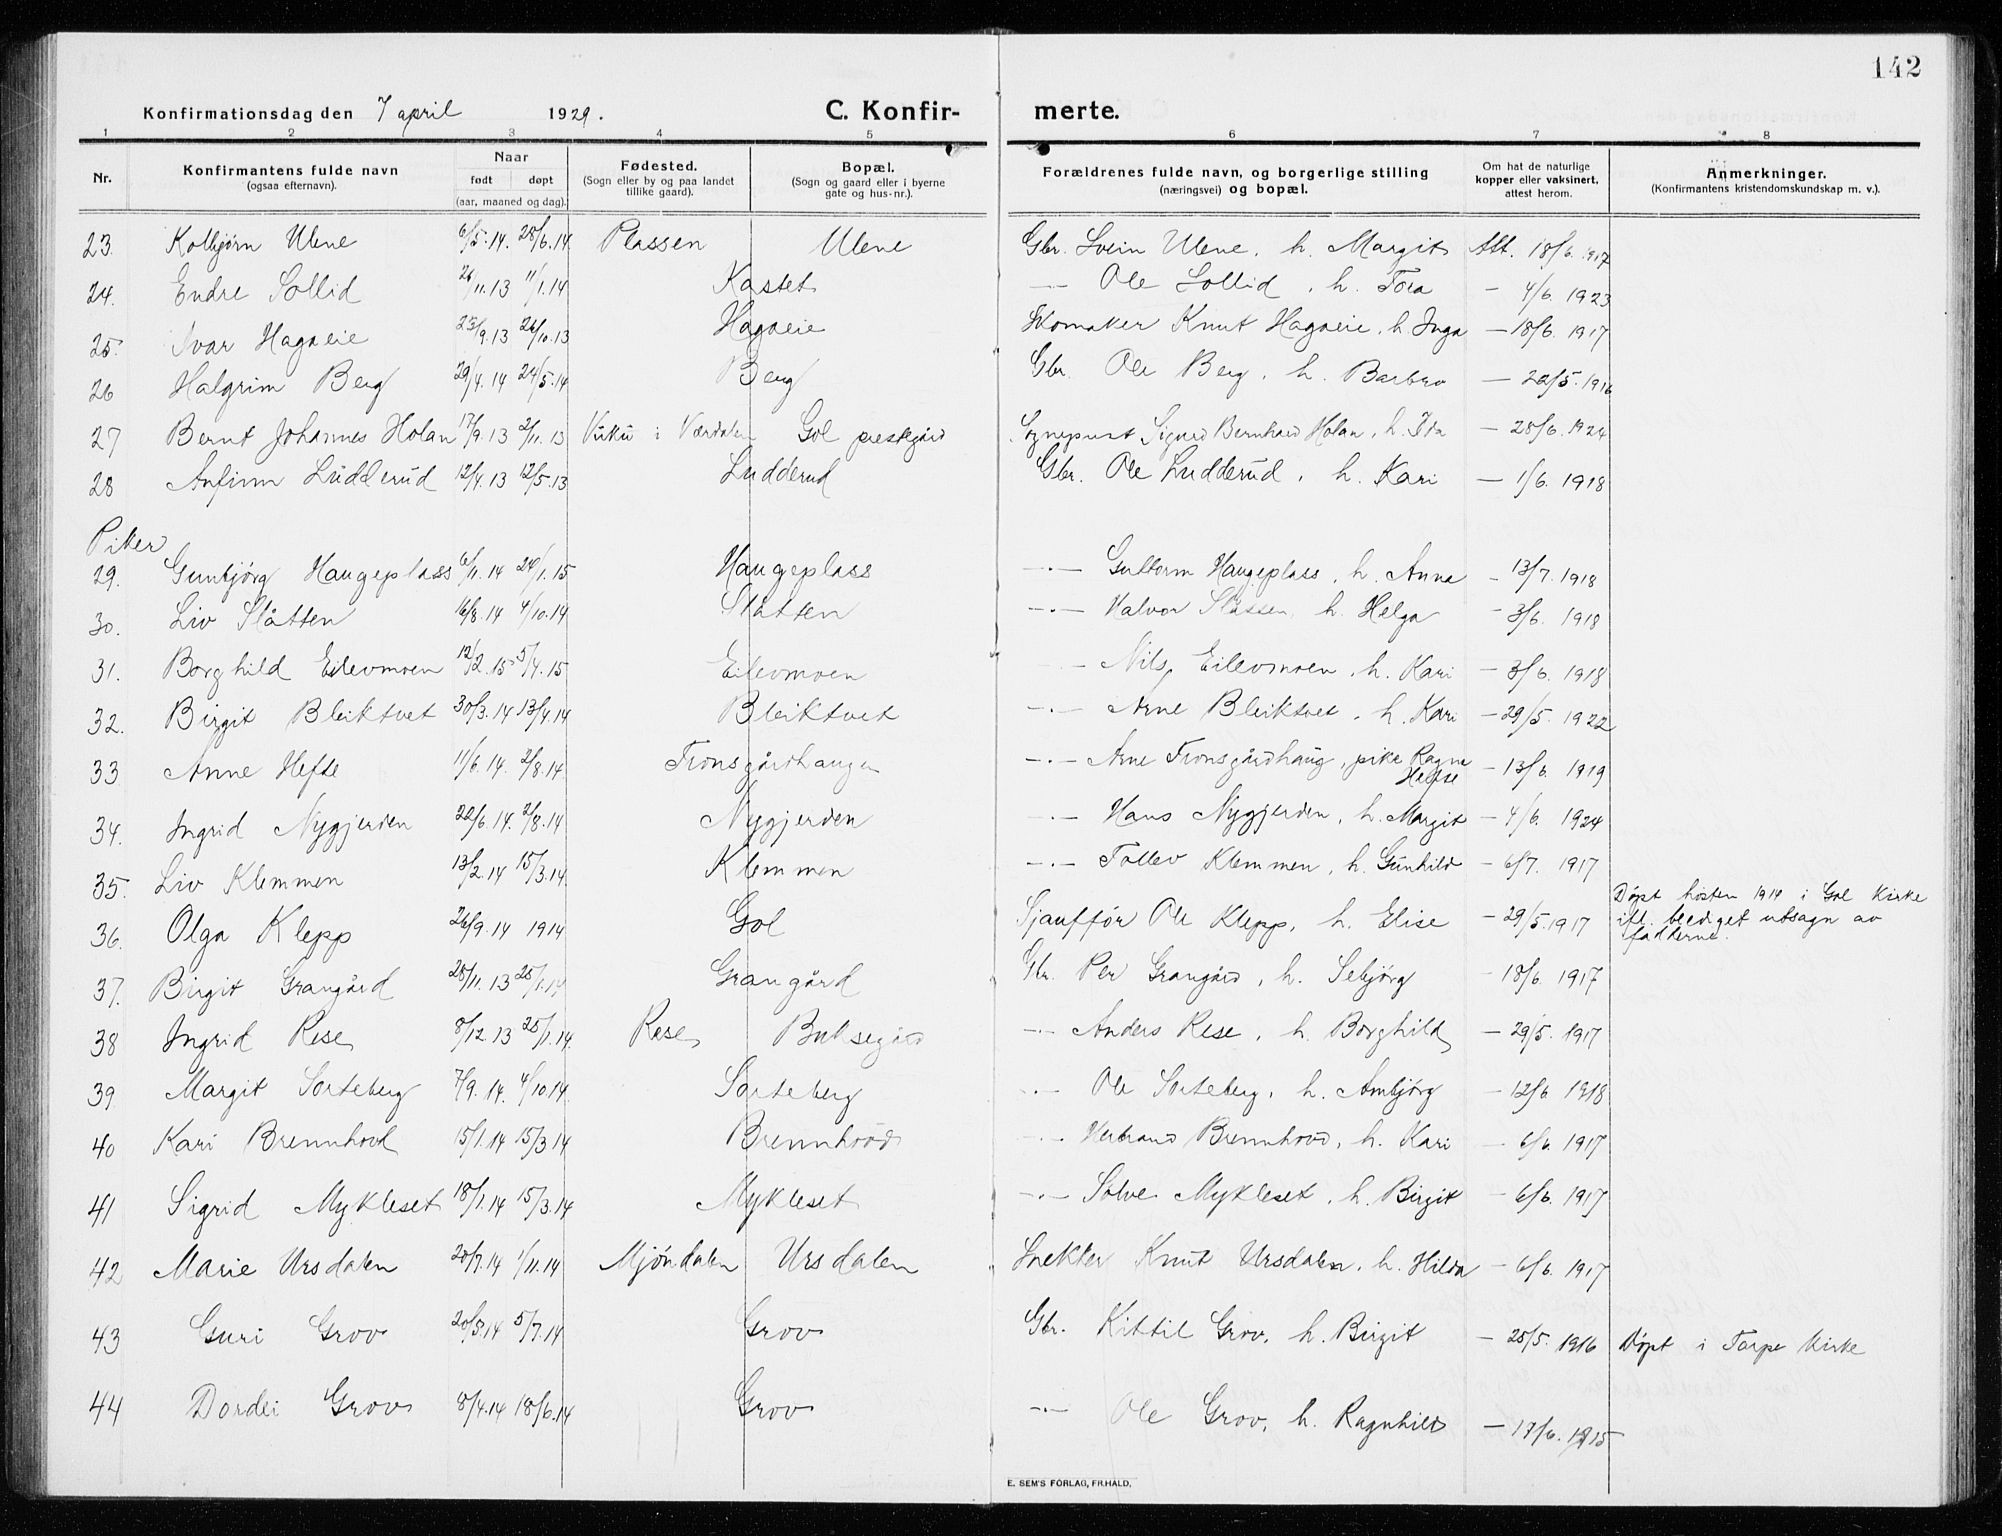 142
Konfirmationsdag den 7 april 1929. C. Konfir- merte.
1 2 3 4 5 6 7 8
Nr. Konfirmantens fulde navn (ogsaa efternavn). Naar født døpt (aar, maaned og dag). Fødested. (Sogn eller by og paa landet tillike gaard). Bopæl. (Sogn og gaard eller i byerne gate og hus-nr.). Forældrenes fulde navn, og borgerlige stilling (næringsvei) og bopæl. Om hat de naturlige kopper eller vaksinert, attest herom. Anmerkninger. (Konfirmantens kristendomskundskap m. v.).
23. Kolbjørn Ulene 6/5.14. 28/6.14. Plassen Ulene Gbr. Svein Ulene, h. Margit Att. 18/6. 1917
24. Endre Sollid 11.13 11/1.14 Kastet — Ole Sollid, h. Tora — 4/6. 1923
25. Ivar Hagaeie 25/9.13 26/10.13 Hagaeie Skomaker Knut Hagaeie, h. Inga — 18/6. 1917
26 Halgrim Berg 29/4.14 24/5.14 Berg Gbr. Ole Berg, h. Barbro — 22/5. 1916
27 Bernt Johannes Holan 17/9.13 2/11.13 Vuku i Værdalen Gol prestegård Sogneprest Sigurd Bernhard Holan, h. Ida — 28/6. 1924
28 Anfinn Ludderud 12/4.13 12/5.13 Ludderud Gbr. Ole Ludderud, h. Kari — 1/6. 1918
Piker
29. Gunbjørg Haugeplass 6/11.14 24/1.15 Haugeplass —·— Guttorm Haugeplass, h. Anna — 13/7. 1918
30. Liv Slåtten 16/8.14 4/10.14 Slåtten —·— Halvor Slåtten, h. Helga — 3/6. 1918
31. Borghild Eilevmoen 12/2.15 5/4.15 Eilevmoen —·— Nils Eilevmoen, h. Kari — 3/6. 1918
32. Birgit Bleiktvet 30/3.14 13/4.14 Bleiktvet —·— Arne Bleiktvet, h. Kari — 29/5. 1922
33 Anne Hefte 11/6.14. 2/8.14 Tronsgårdhaugen —·— Arne Tronsgårdhaug, pike Ragna Hefte — 13/6 1919
34. Ingrid Nygjerden 22/6.14. 2/8.14 Nygjerden —·— Hans Nygjerden, h. Margit — 4/6. 1924
35. Liv Klemmen 13/2.14 15/3.14. Klemmen —·— Tollev Klemmen, h. Gunhild — 6/7. 1917
36. Olga Klepp 26/9.14 1914 Gol Sjauffør Ole Klepp, h. Elise — 29/5. 1917 Døpt høsten 1914 i Gol Kirke ifl. beediget utsagn av fadderne.
37. Birgit Grangård 28/11.13 25/1.14 Grangård Gbr. Per Grangård, h. Sebjørg — 18/6. 1917
38 Ingrid Rese 8/12.13 25/1.14. Rese Buksegård —·— Anders Rese, h. Borghild — 29/5. 1917
39 Margit Sorteberg 7/9.14. 4/10.14 Sorteberg —·— Ole Sorteberg, h. Ambjørg — 12/6 1918
40 Kari Brennhovd 15/1.14 15/3.14 Brennhovd —·— Herbrand Brennhovd, h. Kari — 6/6. 1917
41 Sigrid Mykleset 18/1.14 15/3.14 Mykleset —·— Solve Mykleset, h. Birgit — 6/6. 1917
42 Marie Ursdalen 20/7.14 1/11.14 Mjøndalen Ursdalen Snekker Knut Ursdalen, h. Hilda — 6/6. 1917
43 Guri Grov 20/5.14 5/7.14 Grov Gbr. Kittil Grov, h. Birgit — 25/5. 1916 Døpt i Torpe Kirke
44 Dordei Grov 8/4.14 18/6.14 Grov —·— Ole Grov, h. Ragnhild — 17/6. 1915
E. SEM'S FORLAG, FR.HALD.